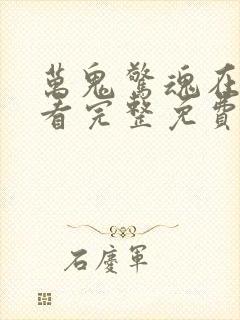 萬鬼驚魂在
看完整免費
石慶軍